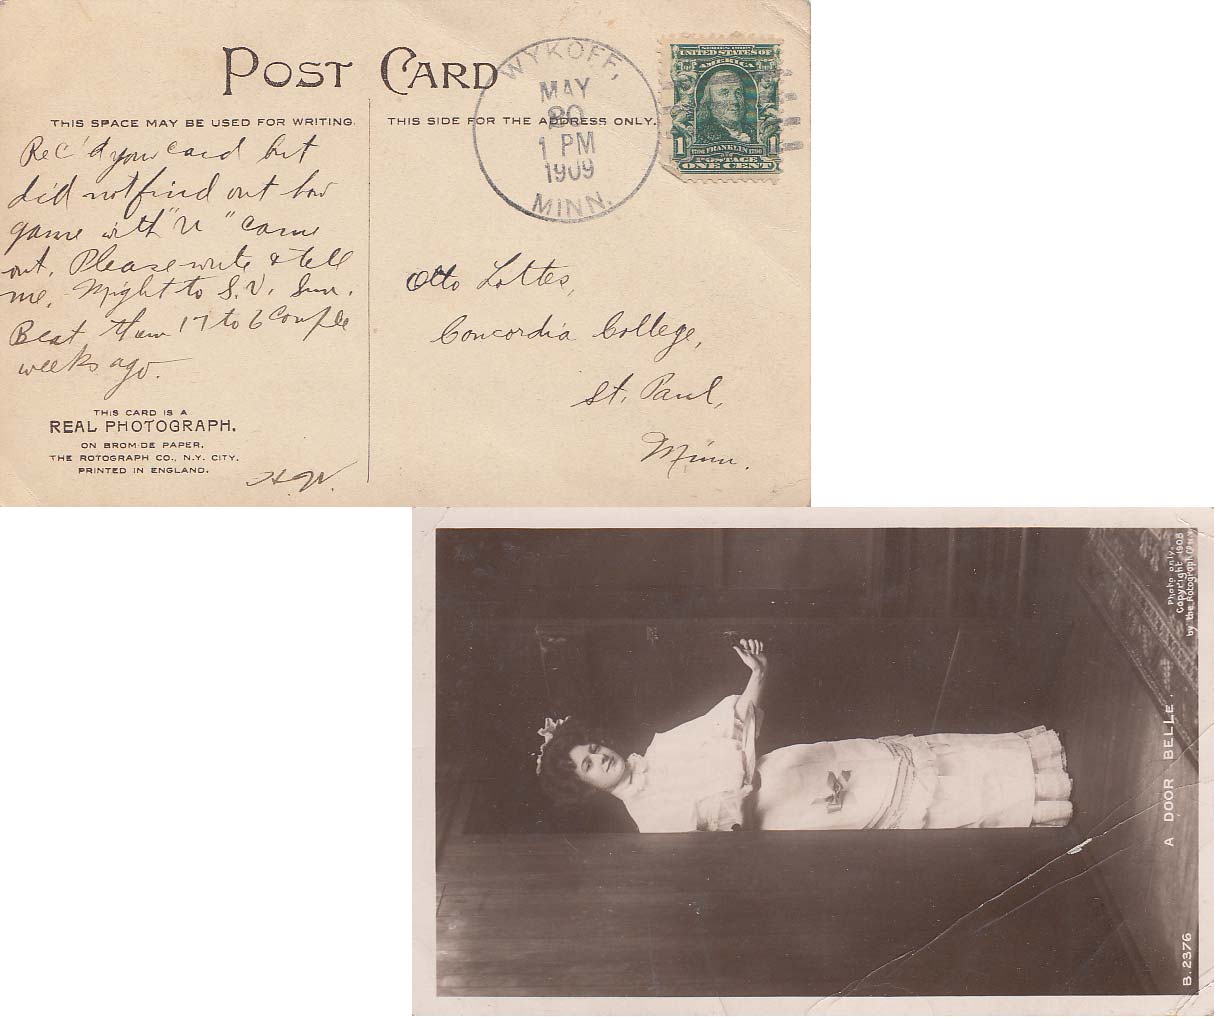 POST CARD
THIS SPACE MAY BE USED FOR WRITING.
THIS SIDE FOR THE ADDRESS ONLY.
WYKOFF,
MAY
20
1 PM
1909
MINN.
SERIES 1902
UNITED STATES OF
AMERICA
1 FRANKLIN 1
POSTAGE
ONE CENT
Rec'd your card but
did not find out how
game with "U" came
out. Please write & tell
me. to S.V. Sun.
Beat them 17 to 6 couple
weeks ago.
H.W.
Otto Lottes,
Concordia College,
St. Paul,
Minn.
THIS CARD IS A
REAL PHOTOGRAPH.
ON BROMIDE PAPER.
THE ROTOGRAPH CO., N.Y. CITY.
PRINTED IN ENGLAND.
Photo only,
Copyright 1908
by the Rotograph Co.
A DOOR BELLE.
B. 2376